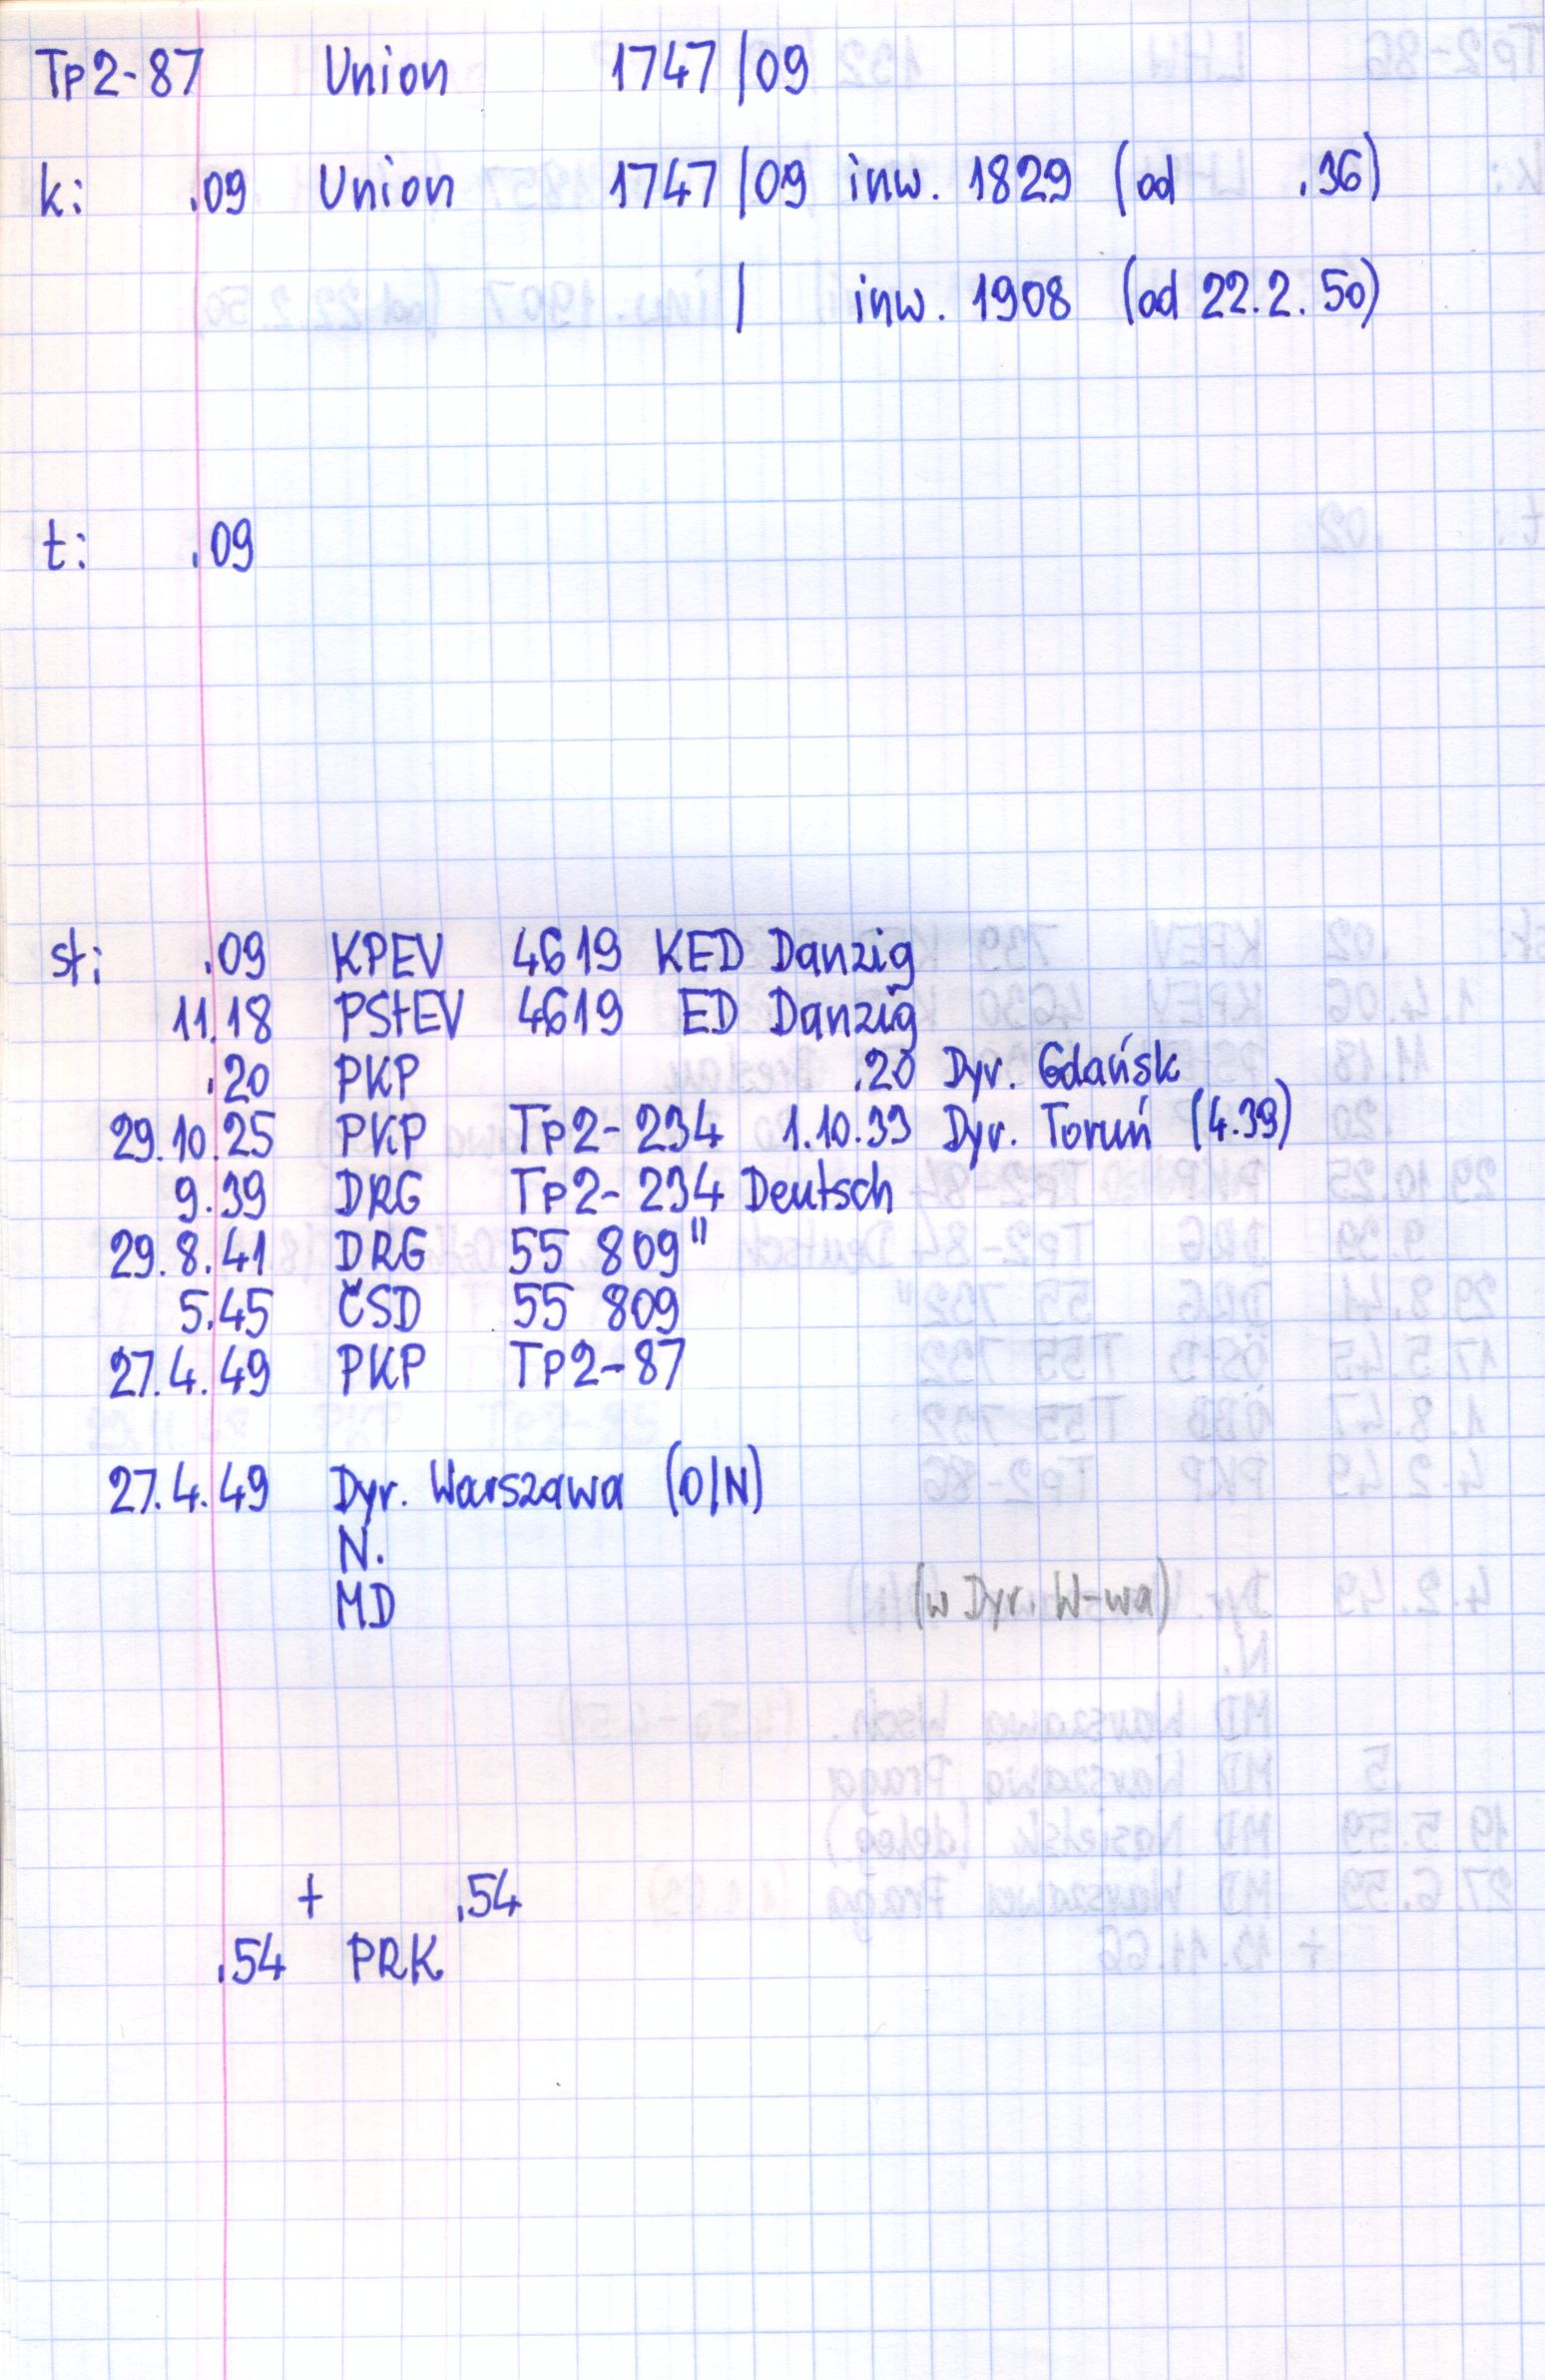 Tp2-87 Union 1747/09
k: .09 Union 1747/09 inw. 1829 (od .36)
/ inw. 1908 (od 22.2.50)
t: .09
st: .09 KPEV 4619 KED Danzig
11.18 PStEV 4619 ED Danzig
.20 PKP .20 Dyr. Gdańsk
29.10.25 PKP Tp2-234 1.10.33 Dyr. Toruń (4.39)
9.39 DRG Tp2-234 Deutsch
29.8.41 DRG 55 809"
5.45 ČSD 55 809
27.4.49 PKP Tp2-87
27.4.49 Dyr. Warszawa (O/N)
N.
MD (w Dyr. W-wa)
+ .54
.54 PRK